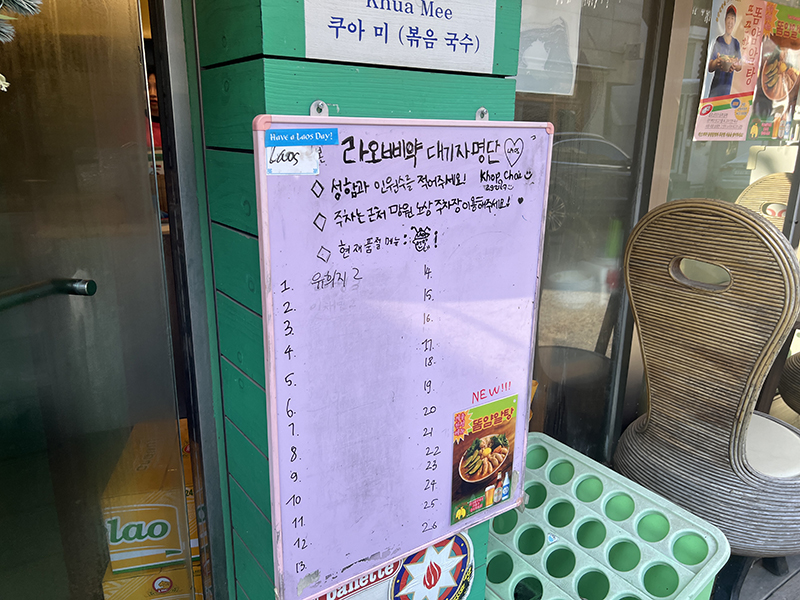 Khua Mee
쿠아 미 (볶음 국수)
Have a Laos Day!
Laos
라오삐약 대기자명단
LAOS
◇ 성함과 인원수를 적어주세요!
Khop Chai
◇ 주차는 근처 만원 노상 주차장 이용해주세요!
◇ 현재 품절 메뉴 :
1. 유희지 2
2.
3.
4.
5.
6.
7.
8.
9.
10
11.
12.
13.
14.
15.
16.
17.
18.
19.
20
21.
22
23
24
25.
26
NEW!!!
똠얌알탕
lao
똠얌알탕